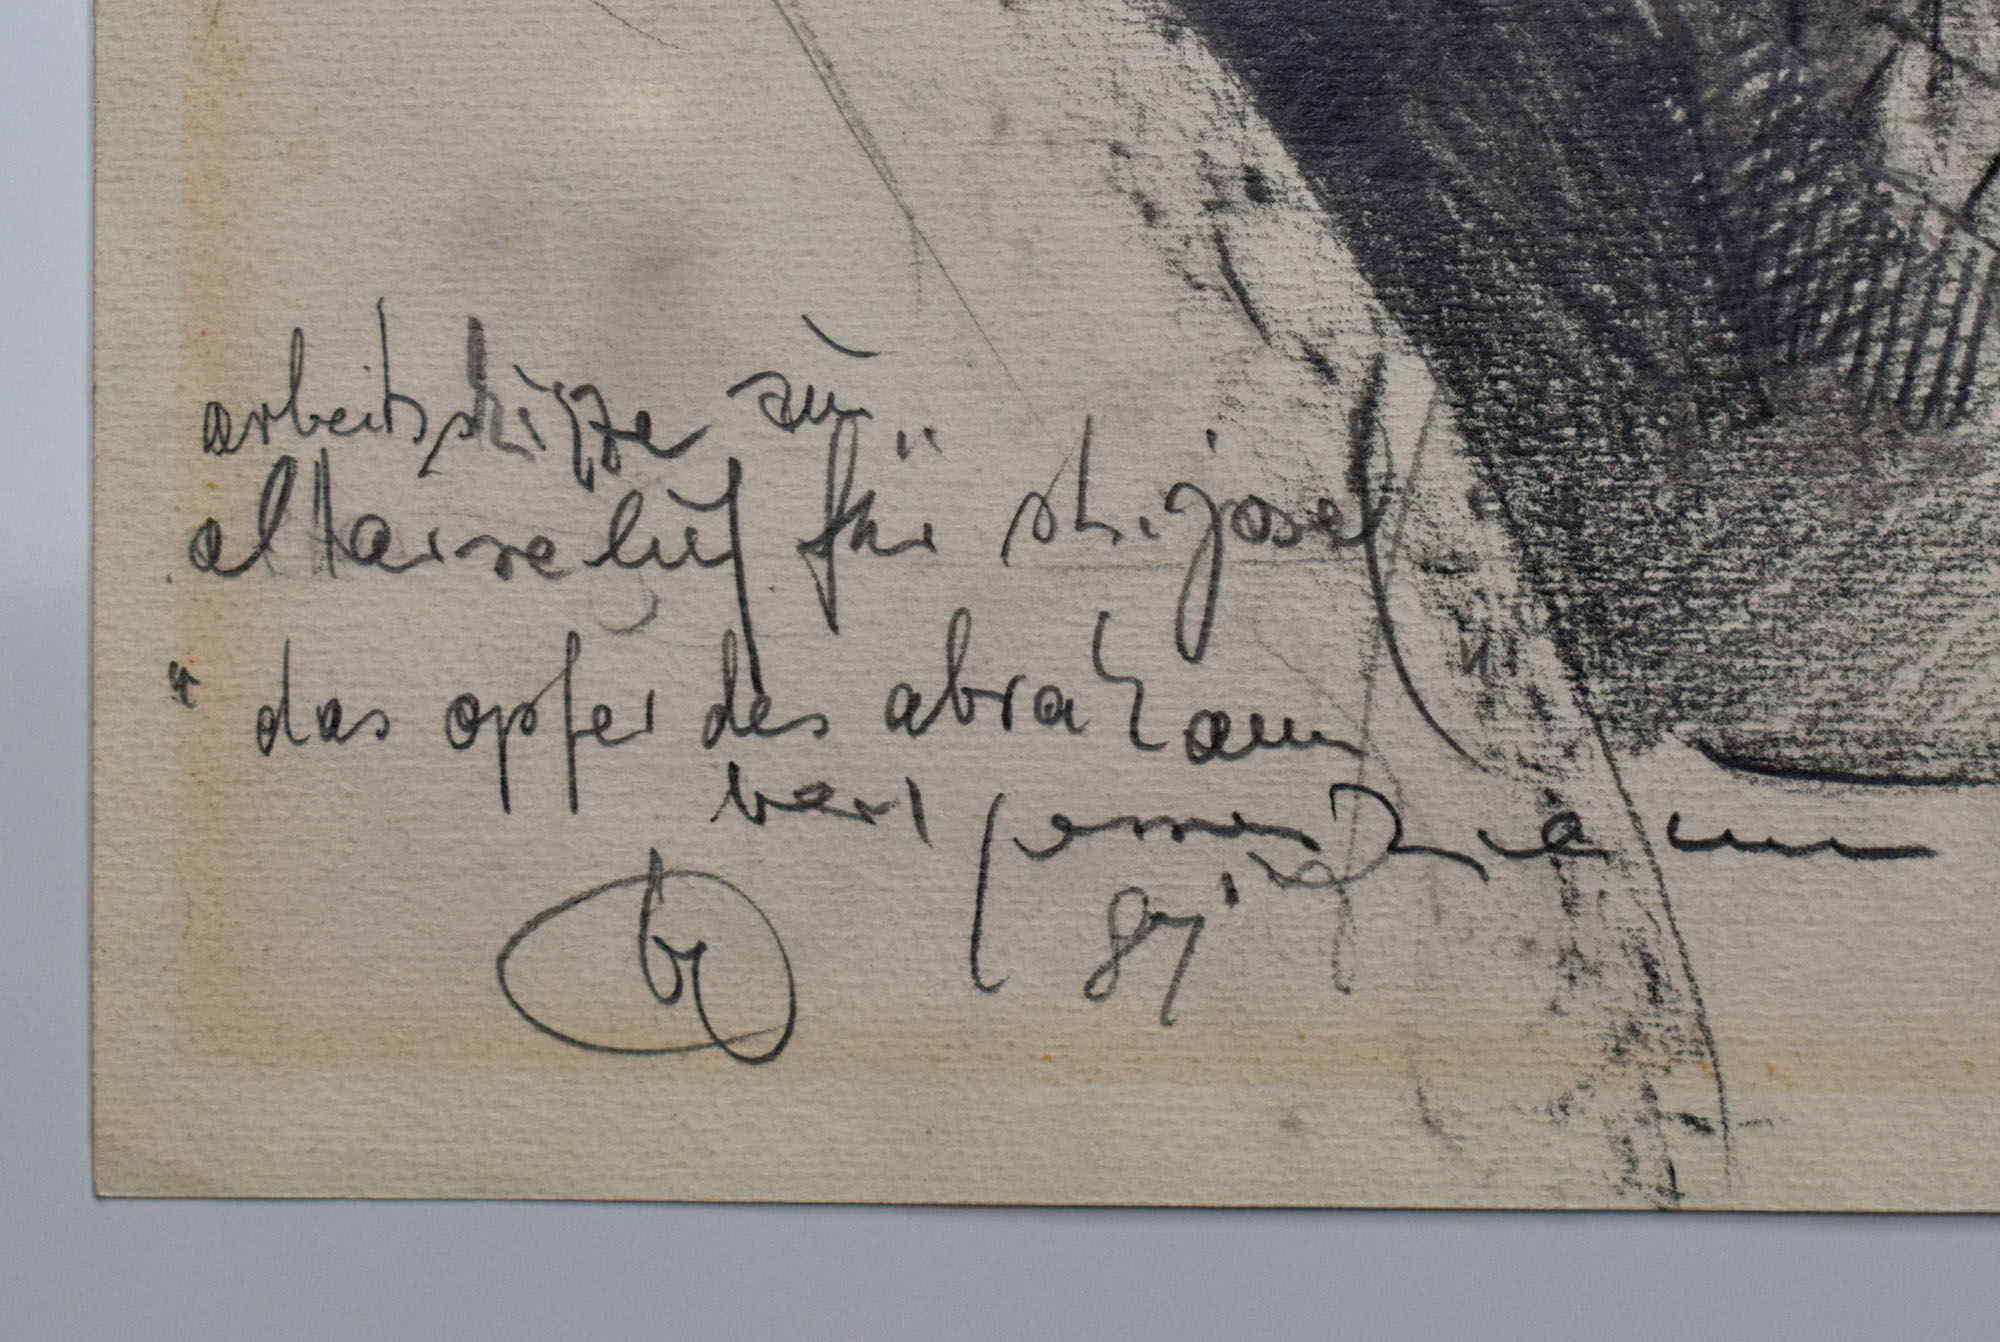 arbeitsskizze zum
altarrelief für st. josef
"das opfer des abraham"
bert gerresheim
87